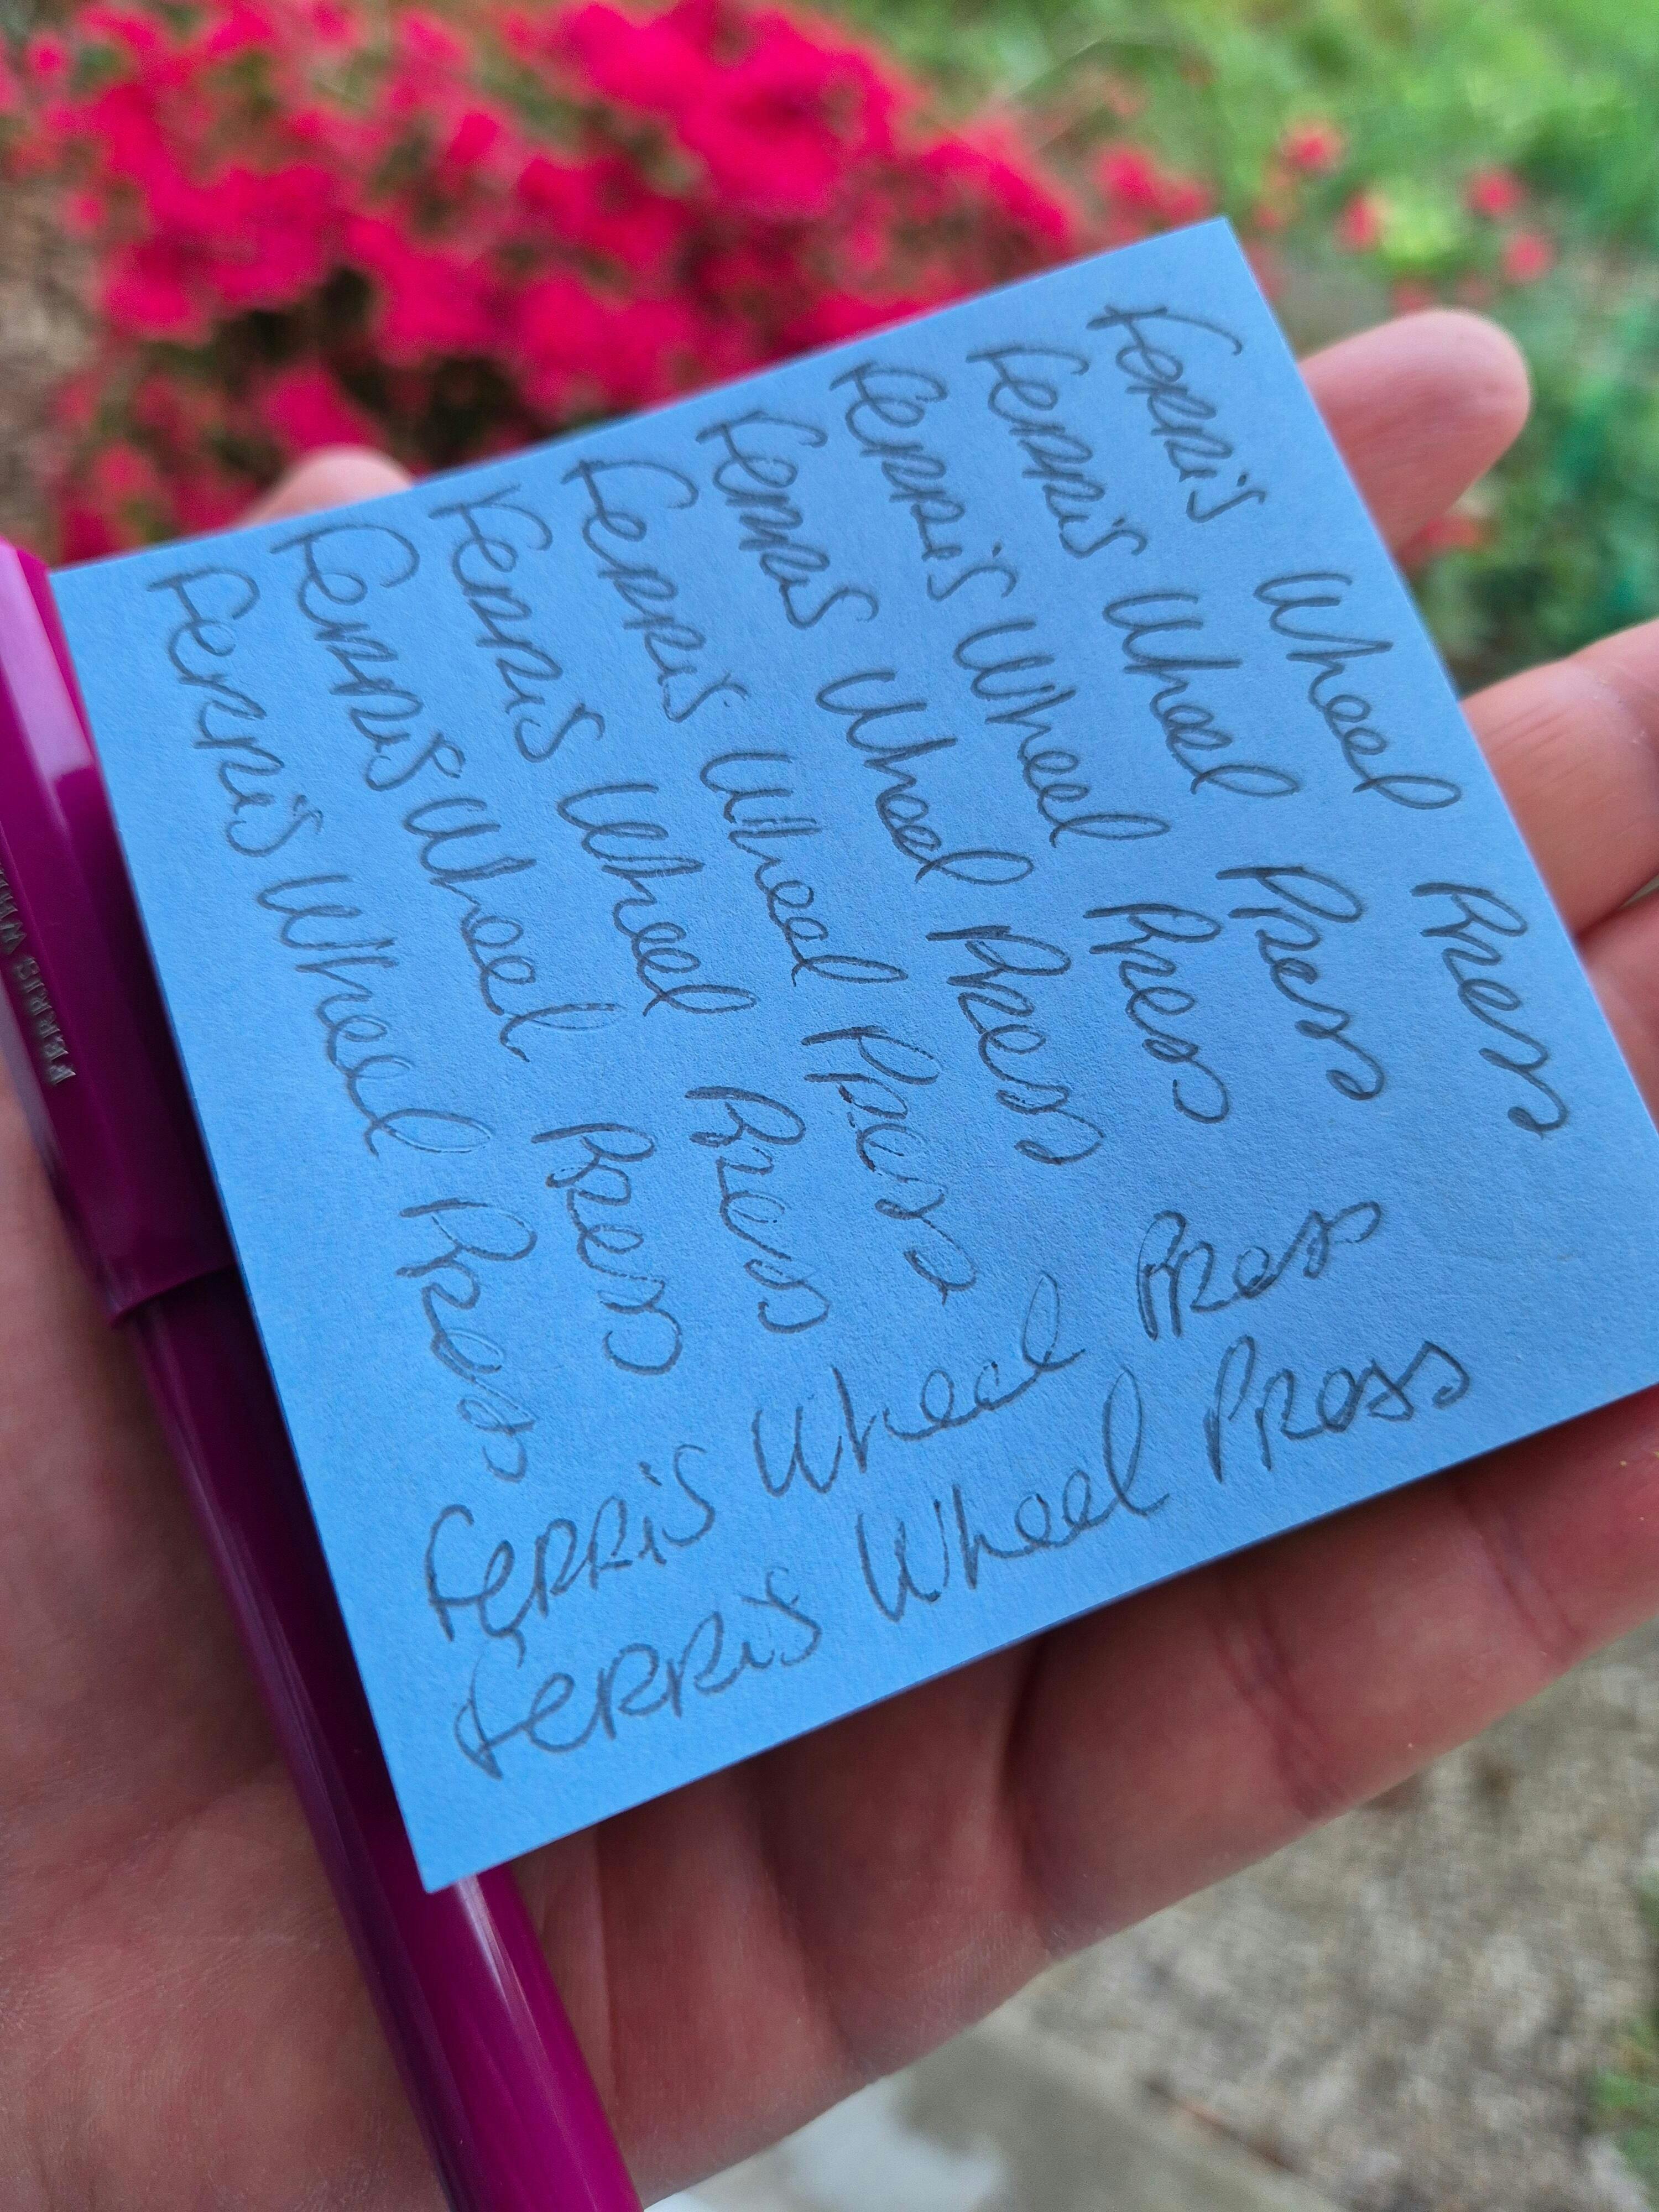 Ferris Wheel Press
Ferris Wheel Press
Ferris Wheel Press
Ferris Wheel Press
Ferris Wheel Press
Ferris Wheel Press
Ferris Wheel Press
Ferris Wheel Press
Ferris Wheel Press
Ferris Wheel Press
FERRIS